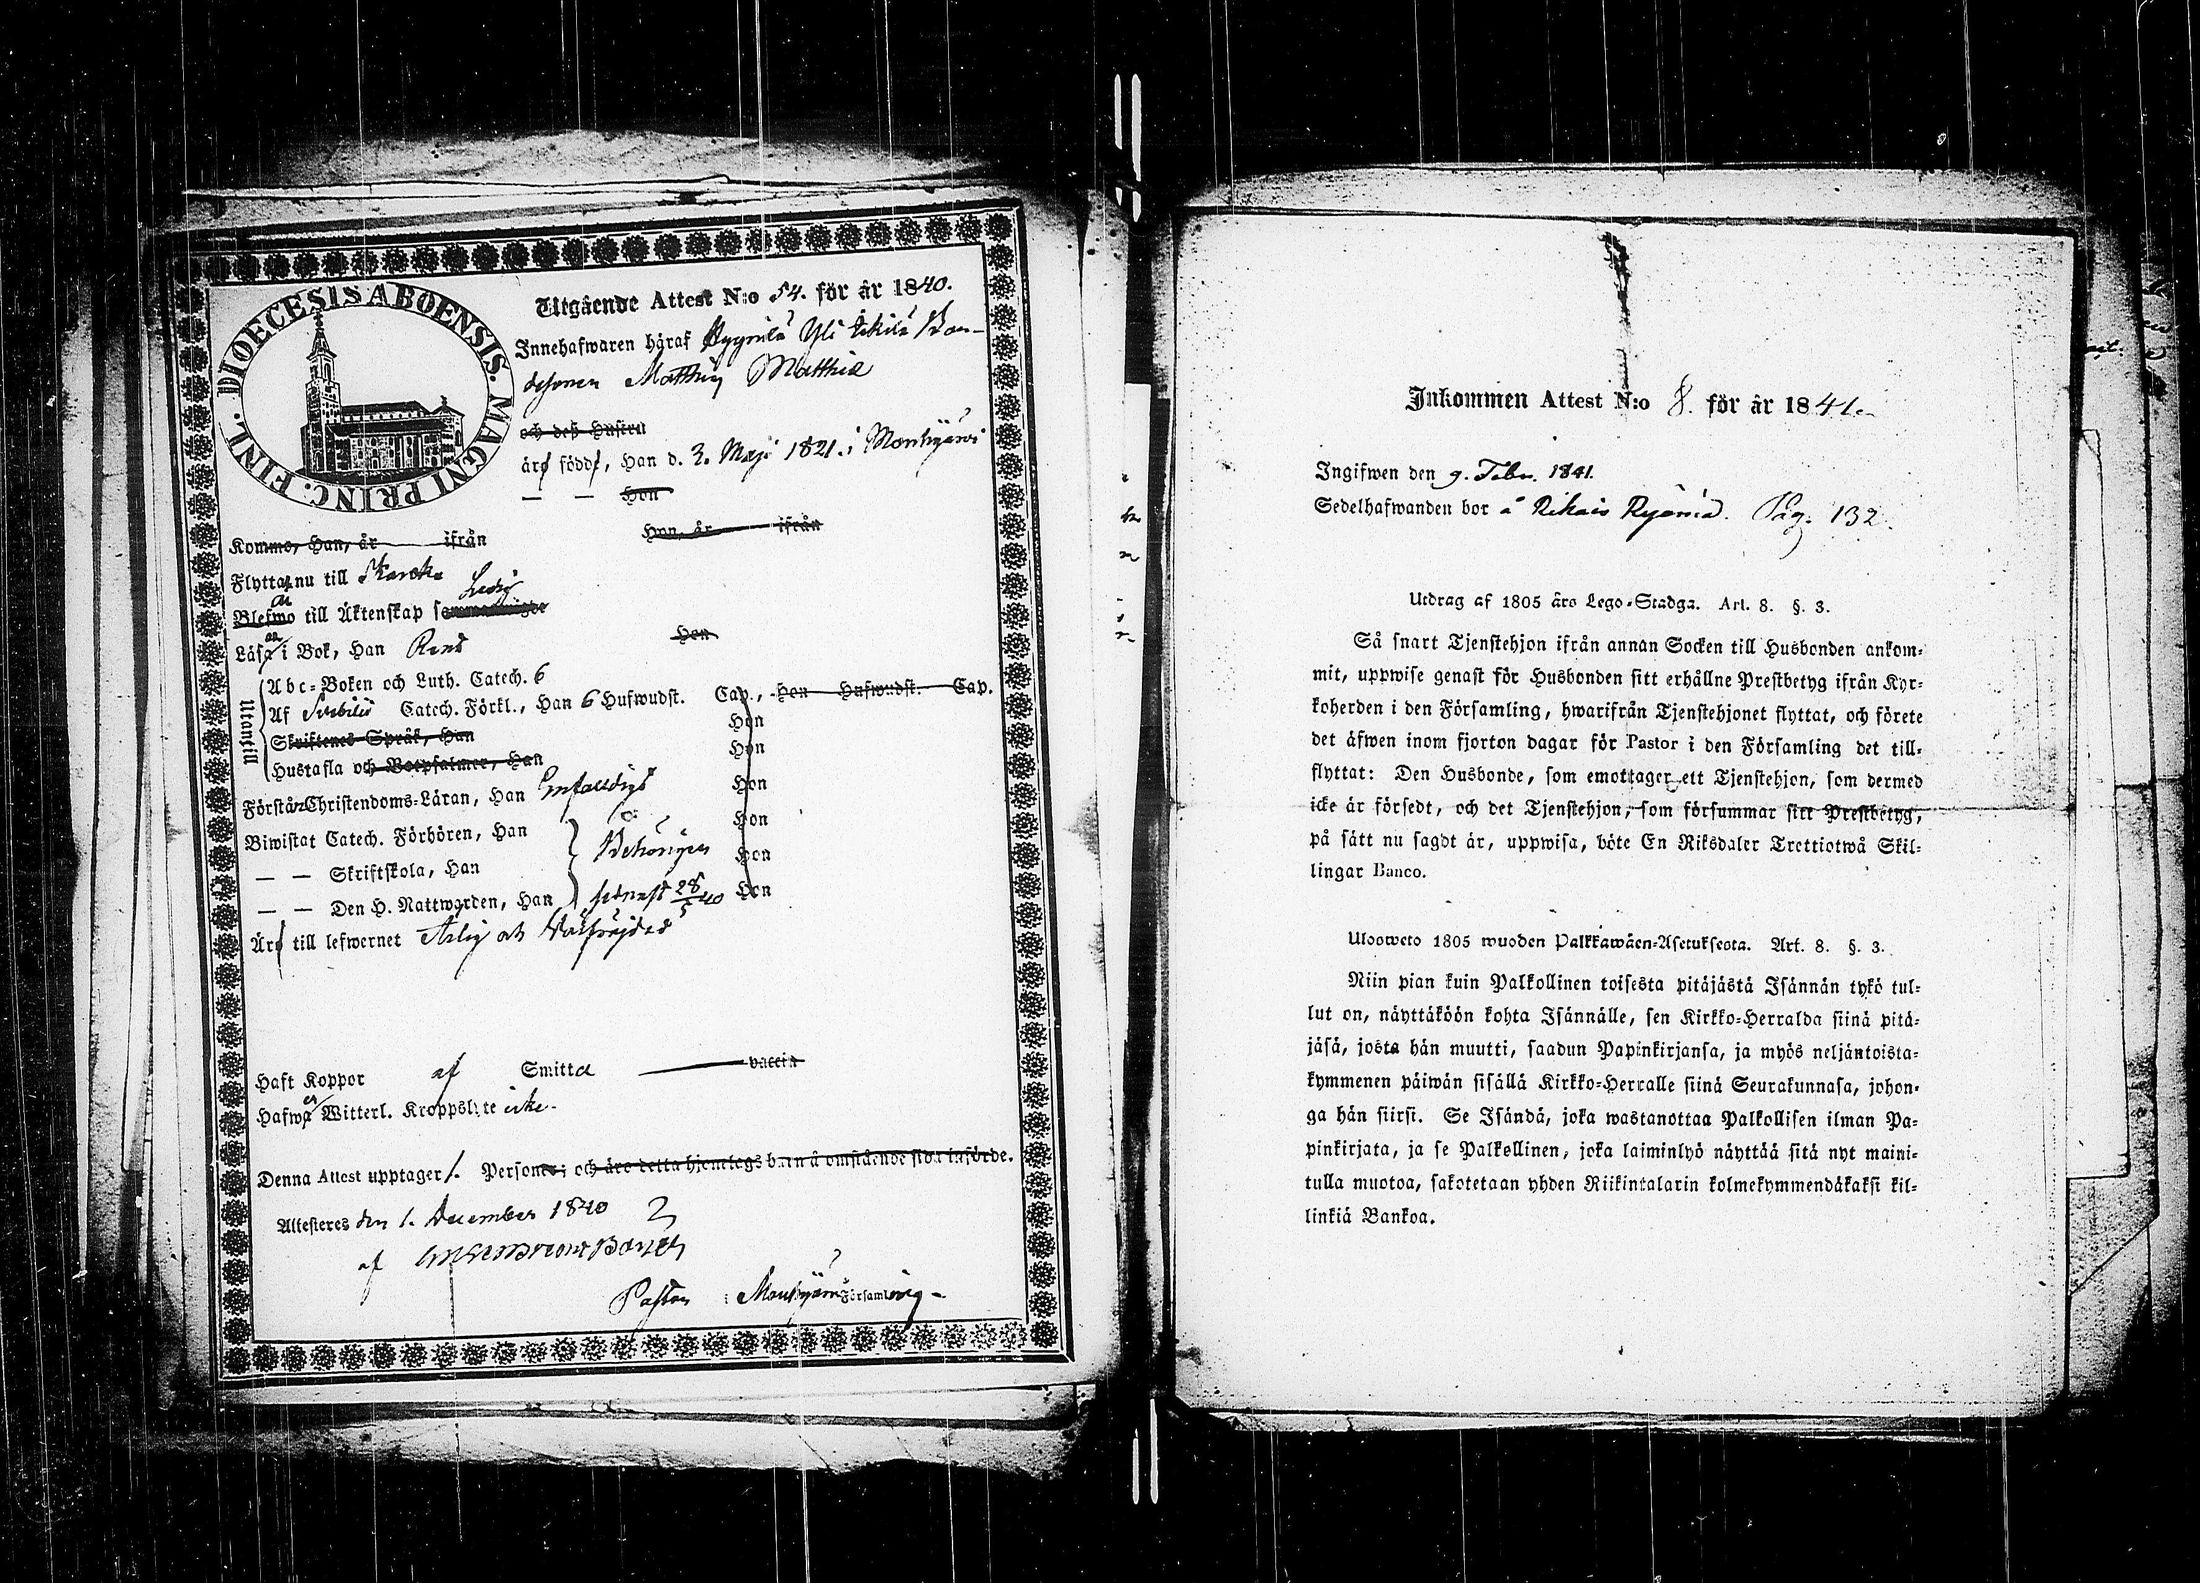 DIOECESIS ABOENSIS. MAGNI PRINC. FINL.
Utgående Attest N:o 54. för år 1840.
Innehafwaren häraf Yli Bon-
desonen Matthias Matthiæ
och deß Hustru
äro född, Han d. 3. Maji 1821. i Mouhijärvi
— — Hon
Komne, Han, år ifrån Hon, år ifrån
Flyttar nu till Karcku
Blefwo till Äktenskap Ledig
Läsa i Bok, Han Rent Hon
Utantill
Abc-Boken och Luth. Catech. 6
Af Svebilii Catech. Förkl., Han 6 Hufwudst. Cap., Hon Hufwudst. Cap.
Skriftenes Språk, Han Hon
Hustafla och Botpsalmer, Han Hon
Förstår Christendoms-Läran, Han Enfaldigt Hon
Biwistat Catech. Förhören, Han Hon
— — Skriftskola, Han Behörigen Hon
— — Den H. Nattwarden, Han sednast 28/5 40 Hon
Äro till lefwernet Ärlig och Wälfräjdad
Haft Koppor af Smitta vaccin
Hafwa Witterl. Kroppslyte icke.
Denna Attest upptager 1. Person och äro detta hjonelags barn å omstående sida införde.
Attesteras den 1. December 1840
af
Pastor i Mouhijärvi Församling
Inkommen Attest N:o 8. för år 1841.
Ingifwen den 9. Febr. 1841.
Sedelhafwanden bor å Pag. 132.
Utdrag af 1805 års Lego-Stadga. Art. 8. §. 3.
Så snart Tjenstehjon ifrån annan Socken till Husbonden ankom-
mit, uppwise genast för Husbonden sitt erhållne Prestbetyg ifrån Kyr-
koherden i den Församling, hwarifrån Tjenstehjonet flyttat, och förete
det äfwen inom fjorton dagar för Pastor i den Församling det till-
flyttat: Den Husbonde, som emottager ett Tjenstehjon, som dermed
icke är försedt, och det Tjenstehjon, som försummar sitt Prestbetyg,
på sätt nu sagdt är, uppwisa, böte En Riksdaler Trettiotwå Skil-
lingar Banco.
Ulosweto 1805 wuoden Palkkawäen-Asetuksesta. Art. 8. §. 3.
Niin pian kuin Palkollinen toisesta pitäjästä Isännän tykö tul-
lut on, näyttäköön kohta Isännälle, sen Kirkko-Herralda siinä pitä-
jäsä, josta hän muutti, saadun Papinkirjansa, ja myös neljäntoista-
kymmenen päiwän sisällä Kirkko-Herralle siinä Seurakunnasa, johon-
ga hän siirsi. Se Isändä, joka wastanottaa Palkollisen ilman Pa-
pinkirjata, ja se Palkollinen, joka laiminlyö näyttää sitä nyt maini-
tulla muotoa, sakotetaan yhden Riikintalarin kolmekymmendäkaksi kil-
linkiä Bankoa.